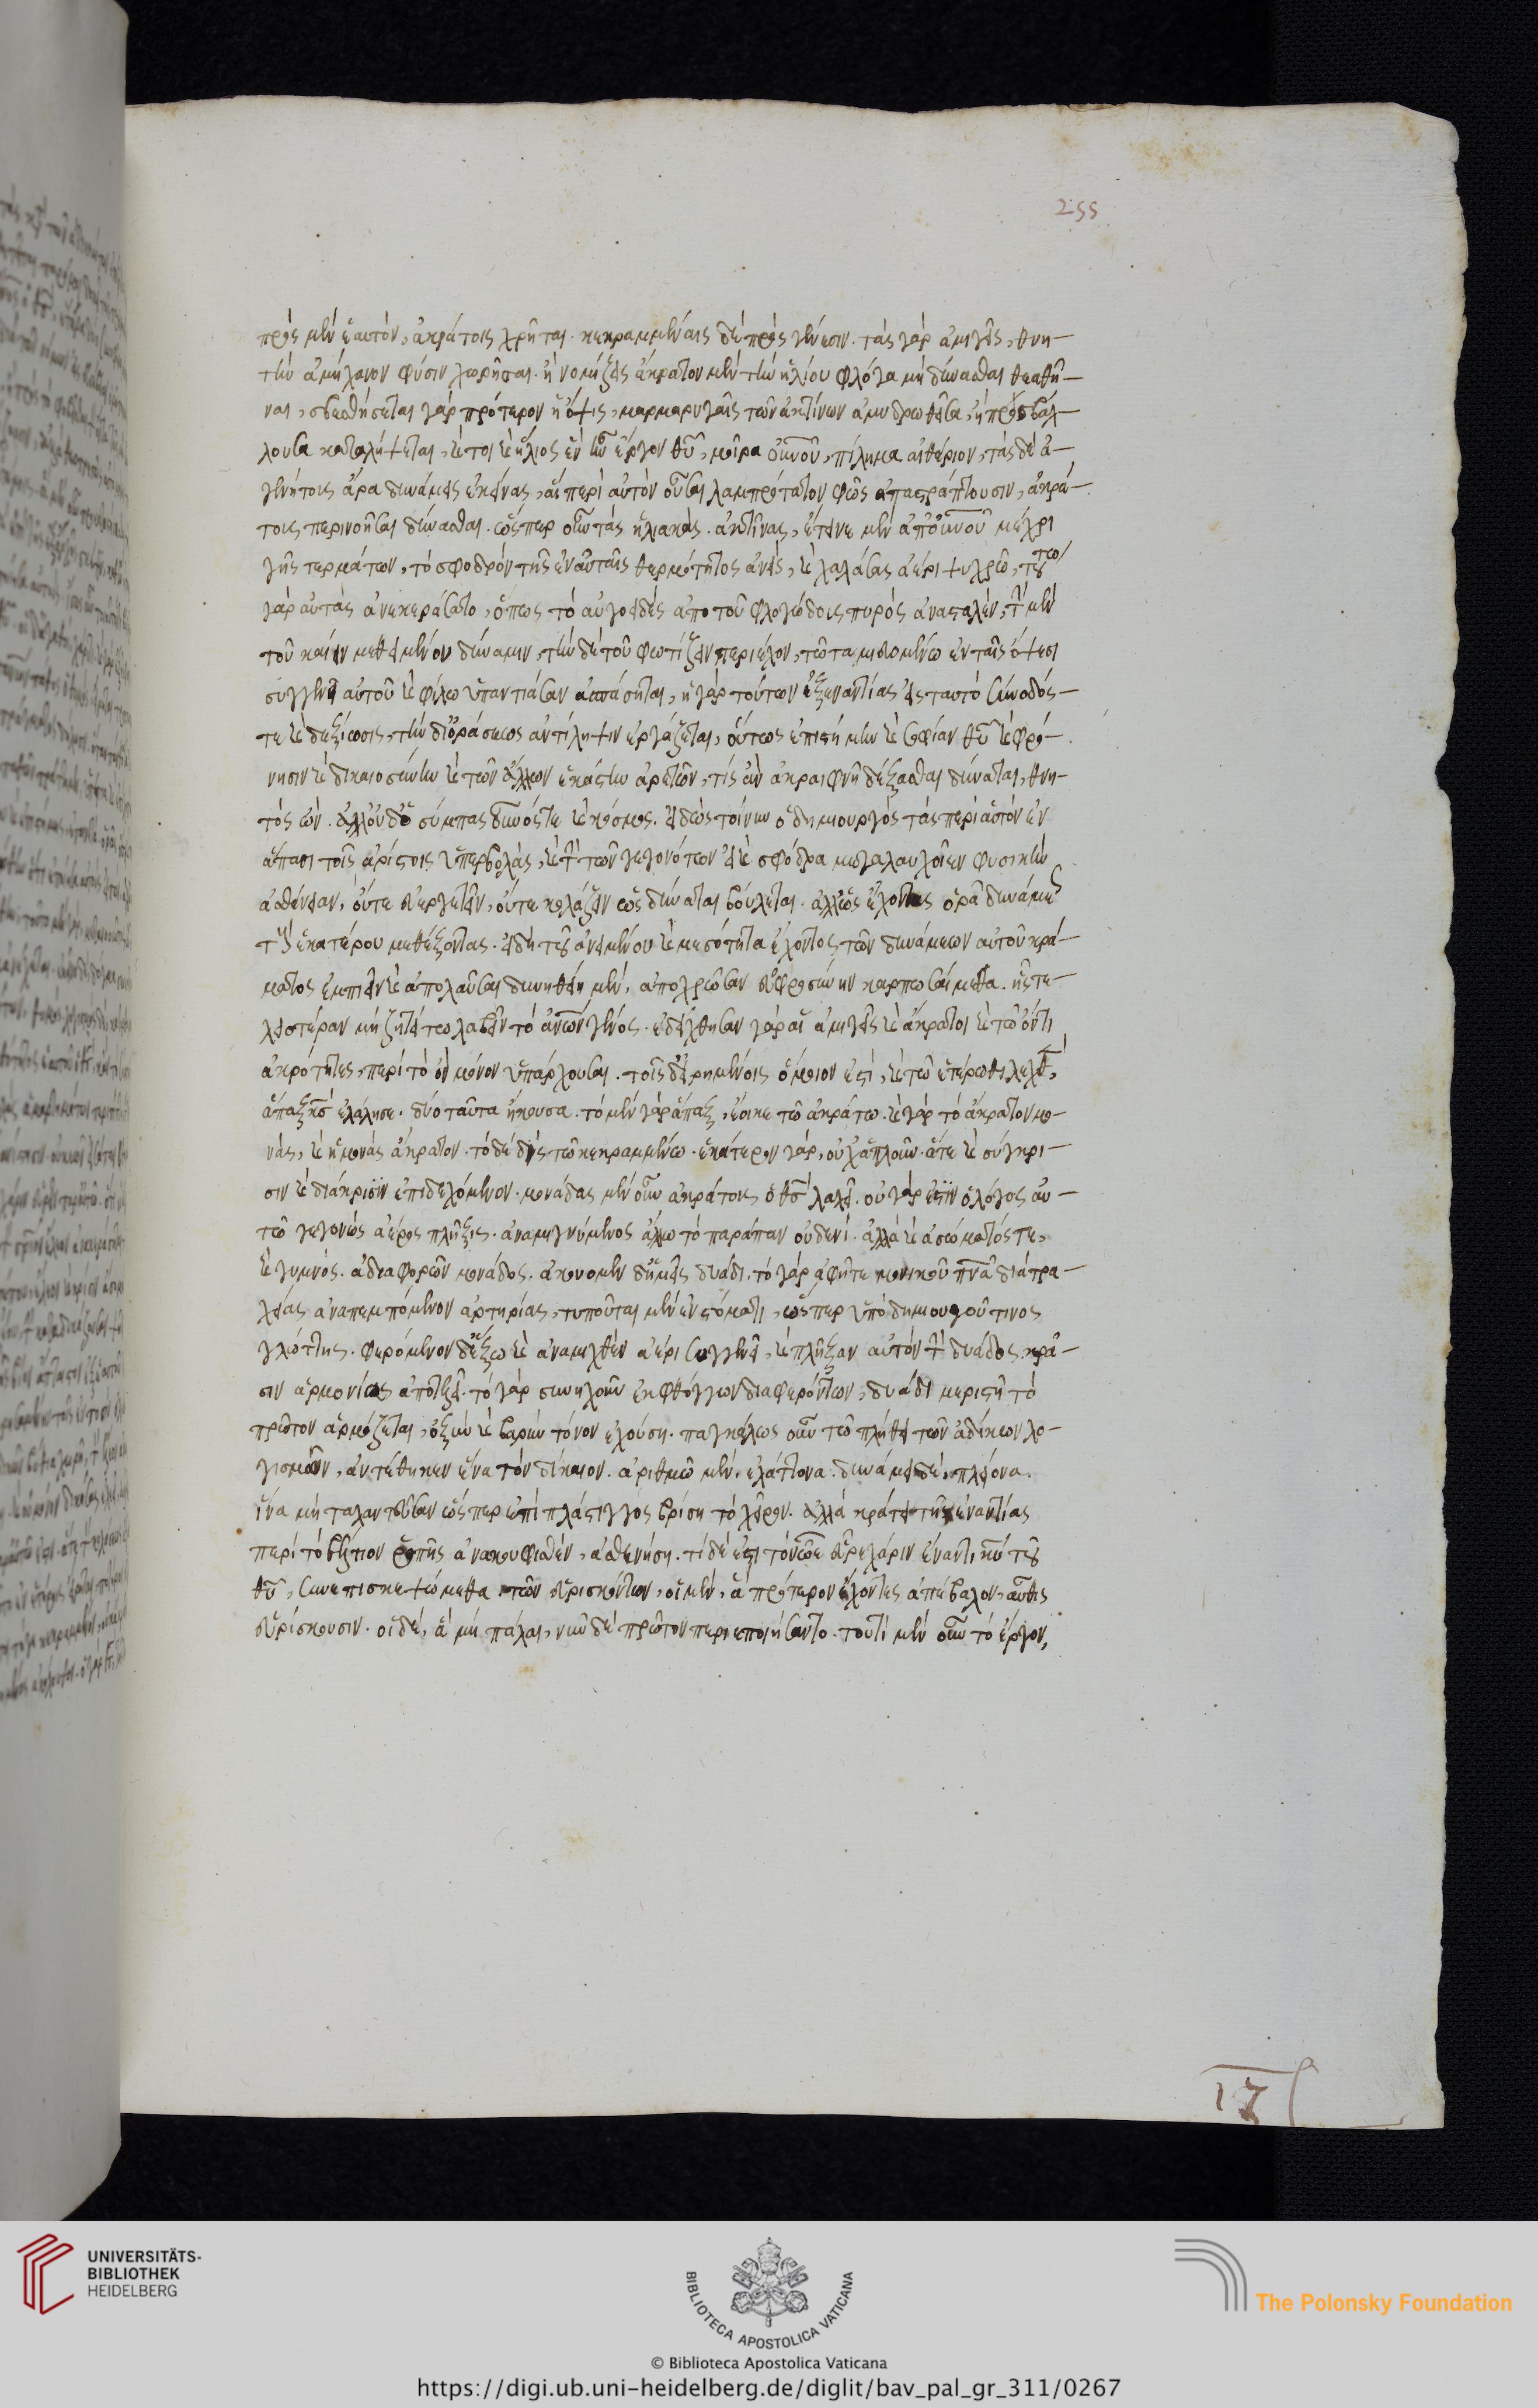 255
πρὸς μὲν ἑαυτὸν, ἀκράτοις χρῆται. κεκραμμέναις δὲ πρὸς γένεσιν. τὰς γὰρ ἀμιγεῖς, θνη-
τὴν ἀμήχανον φύσιν χωρῆσαι. ἢ νομίζεις ἄκρατον μὲν τὴν ἡλίου φλόγα μὴ δύνασθαι θεαθῆ-
ναι, σβεσθήσεται γὰρ πρότερον ἡ ὄψις, μαρμαρυγαῖς τῶν ἀκτίνων ἀμυδρωθεῖσα, ἢ προσβάλ-
λουσα καταλήψεται, καίτοι καὶ ἥλιος ἓν ἦν ἔργον θῡ, μοῖρα οὐνοῦ, πίλημα αἰθέριον, τὰς δὲ ἀ-
γενήτοις ἄρα δυνάμεις ἐκείνας, αἳ περὶ αὐτὸν οὖσαι λαμπρότατον φῶς ἀπαστράπτουσιν, ἀκρά-
τοις περινοῆσαι δύνασθαι. ὥσπερ οὖν τὰς ἡλιακὰς ἀκτῖνας, ἔτεινε μὲν ἀπ' οὐνοῦ μέχρι
γῆς τερμάτων, τὸ σφοδρὸν τῆς ἐν αὐταῖς θερμότητος ἀνεὶς, καὶ χαλάσας ἀέρι ψυχρῶ, τούτω
γὰρ αὐτὰς ἀνεκεράσατο, ὅπως τὸ αὐγοειδὲς ἀπὸ τοῦ φλογώδοις πυρὸς ἀνασταλὲν, τὴν μὲν
τοῦ καίειν μεθειμένον δύναμιν, τὴν δὲ τοῦ φωτίζειν περιέχον, τῶ ταμιευομένω ἐν ταῖς ὄψεσι
συγγενεῖ αὐτοῦ καὶ φίλω ὑπαντιάσαν ἀσπάσηται, ἡ γὰρ τούτων ἐξ ἐναντίας εἰς ταυτὸ σύνοδός-
τε καὶ δεξίωσις, τὴν δι' ὁράσεως ἀντίληψιν ἐργάζεται, οὕτως ἐπιστήμην καὶ σοφίαν θῡ καὶ φρό-
νησιν καὶ δικαιοσύνην καὶ τῶν ἄλλων ἑκάστην ἀρετῶν, τίς ἂν ἀκραιφνῆ δέξασθαι δύναται, θνη-
τὸς ὤν. ἀλλ' οὐδ' ὁ σύμπας οὐνός τε καὶ κόσμος. εἰδὼς τοίνυν ὁ δημιουργὸς τὰς περὶ αὐτὸν ἐν
ἅπασι τοῖς ἀρίστοις ὑπερβολὰς, καὶ τὴν τῶν γεγονότων εἰ καὶ σφόδρα μεγαλαυχοῖεν φυσικὴν
ἀσθένειαν, οὔτε εὐεργετεῖν, οὔτε κολάζειν ὡς δύναται βούλεται. ἀλλ' ὡς ἔχοντας ὁρᾶ δυνάμεως
τοὺς ἑκατέρου μεθέξοντας. εἰ δὴ τοῦ ἀνειμένου καὶ μεσότητα ἔχοντος τῶν δυνάμεων αὐτοῦ κρά-
ματος ἐμπιεῖν καὶ ἀπολαῦσαι δυνηθείημεν, ἀποχρῶσαν εὐφροσύνην καρπωσαίμεθα. ἧς τε-
λειοτέραν μὴ ζητείτω λαβεῖν τὸ ἀνῶν γένος. ἐδείχθησαν γὰρ αἱ ἀμιγεῖς καὶ ἄκρατοι καὶ τῶ ὄντι
ἀκρότητες, περὶ τὸ ὂν μόνον ὑπάρχουσαι. τοῖς δ' εἰρημένοις ὅμοιον ἐστὶ, καὶ τῶ ἑτέρωθι λεχθὲν,
ἅπαξ κς̄ ἐλάλησε. δύο ταῦτα ἤκουσα. τὸ μὲν γὰρ ἅπαξ, ἔοικε τῶ ἀκράτω. καὶ γὰρ τὸ ἄκρατον μο-
νὰς, καὶ ἡ μονὰς ἄκρατον. τὸ δὲ δὶς τῶ κεκραμμένω. ἑκάτερον γὰρ, οὐχ ἁπλοῦν. ἅτε καὶ σύγκρι-
σιν καὶ διάκρισιν ἐπιδεχόμενον. μονάδας μὲν οὖν ἀκράτοις ὁ θς̄ λαλεῖ. οὐ γάρ ἐστιν ὁ λόγος αὐ-
τῶ γεγονὼς ἀέρος πλῆξις. ἀναμιγνύμενος ἄλλω τὸ παράπαν οὐδενί. ἀλλὰ καὶ ἀσώματός τε,
καὶ γυμνός. ἀδιαφορῶν μονάδος. ἀκούομεν δ' ἡμεῖς δυάδι. τὸ γὰρ ἀφ' ἡγεμονικοῦ πνᾱ διὰ τρα-
χείας ἀναπεμπόμενον ἀρτηρίας, τυποῦται μὲν ἐν στόματι, ὥσπερ ὑπὸ δημιουργοῦ τινος
γλώττης. φερόμενον δ' ἔξω καὶ ἀναμιχθὲν ἀέρι συγγενεῖ, καὶ πλῆξαν αὐτὸν τὴν δυάδος κρᾶ-
σιν ἁρμονίας ἀποτελεῖ. τὸ γὰρ συνηχοῦν ἐκ φθόγγων διαφερόντων, δυάδι μεριστῆ τὸ
πρῶτον ἁρμόζεται, ὀξὺν καὶ βαρὺν τόνον ἐχούση. παγκάλως οὖν τῶ πλήθει τῶν ἀδίκων λο-
γισμῶν, ἀντέθηκεν ἕνα τὸν δίκαιον. ἀριθμῶ μὲν, ἐλάττονα. δυνάμει δὲ, πλείονα.
ἵνα μὴ ταλαντεῦσαν ὥσπερ ἐπὶ πλάστιγγος βρίση τὸ χεῖρον. ἀλλὰ κράτει τῆς ἐναντίας
περὶ τὸ βέλτιον ῥοπῆς ἀνακουφισθὲν, ἀσθενήση. τί δέ ἐστι τὸ νῶε εὗρε χάριν ἐναντίον κῡ τοῦ
θῡ, συνεπισκεψώμεθα. τῶν εὑρισκόντων, οἱ μὲν, ἃ πρότερον ἔχοντες ἀπέβαλον, αὖθις
εὑρίσκουσιν. οἱ δὲ, ἃ μὴ πάλαι, νῦν δὲ πρῶτον περιεποιήσαντο. τουτὶ μὲν οὖν τὸ ἔργον,
ιζ
UNIVERSITÄTS-
BIBLIOTHEK
HEIDELBERG
BIBLIOTECA APOSTOLICA VATICANA
The Polonsky Foundation
© Biblioteca Apostolica Vaticana
https://digi.ub.uni-heidelberg.de/diglit/bav_pal_gr_311/0267